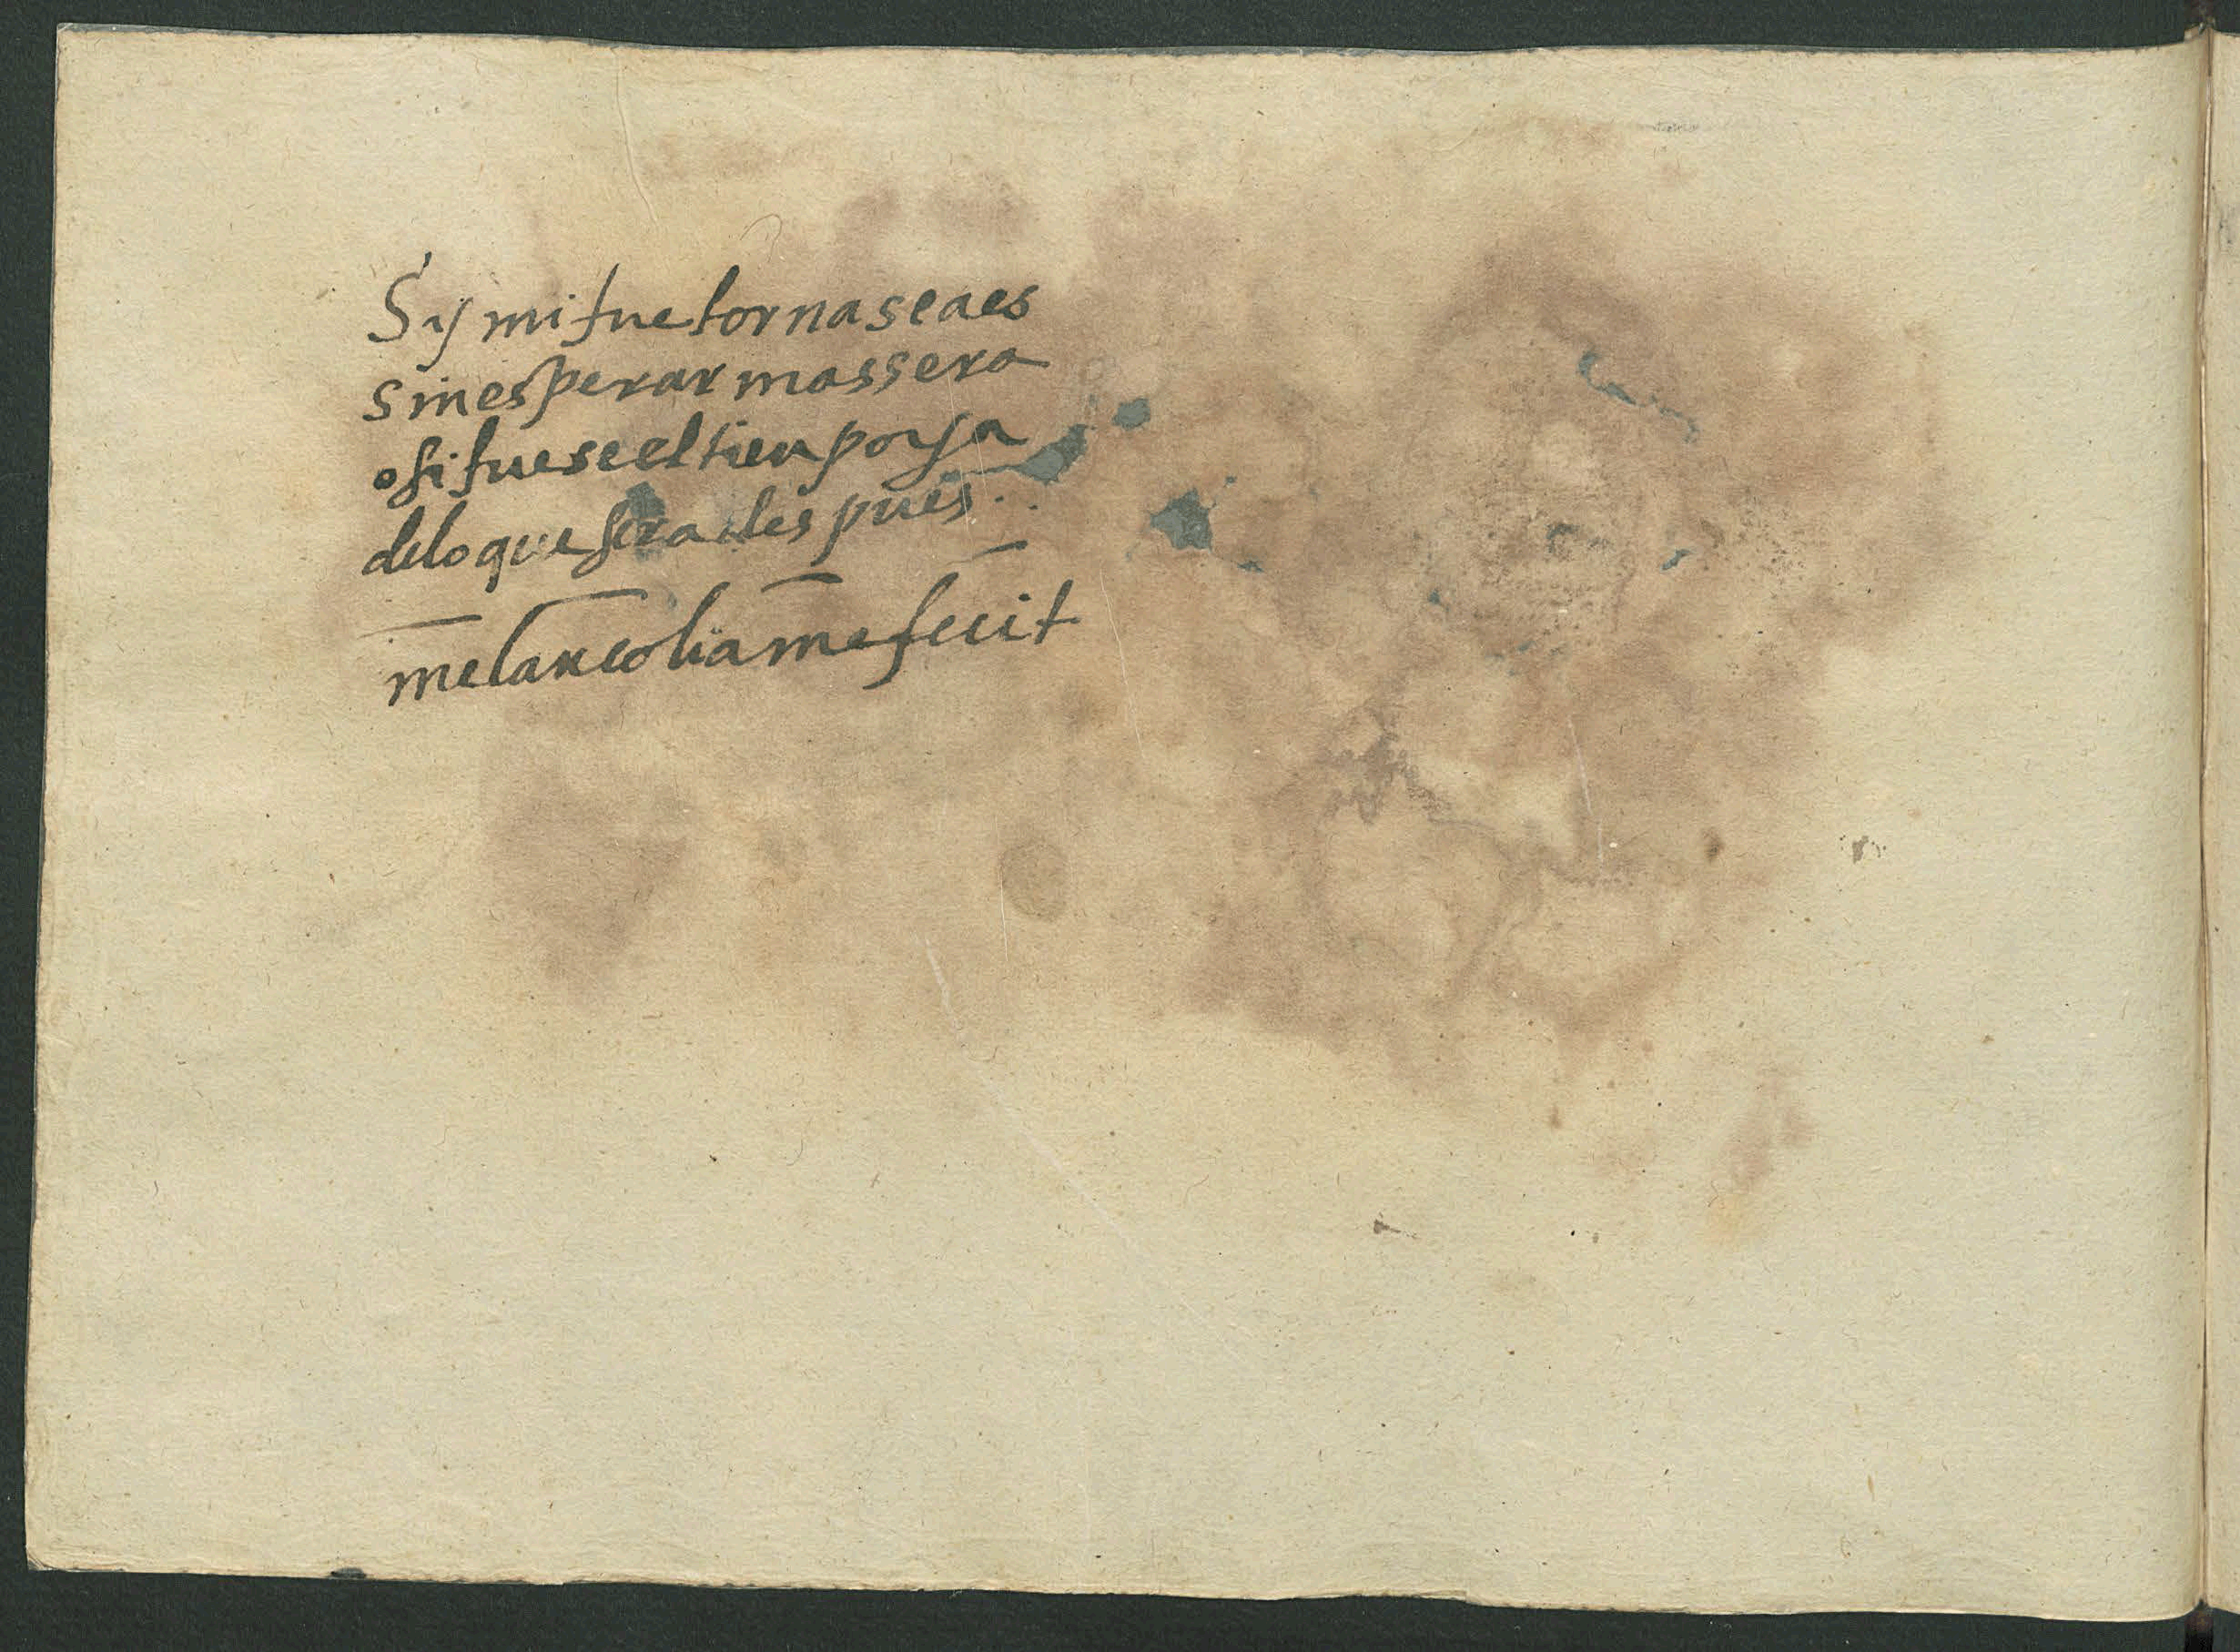 Sy mi fue tornase a es
sin esperar mas sera
o si fuese el tienpo ya
delo que sera despues
melancolia me fecit